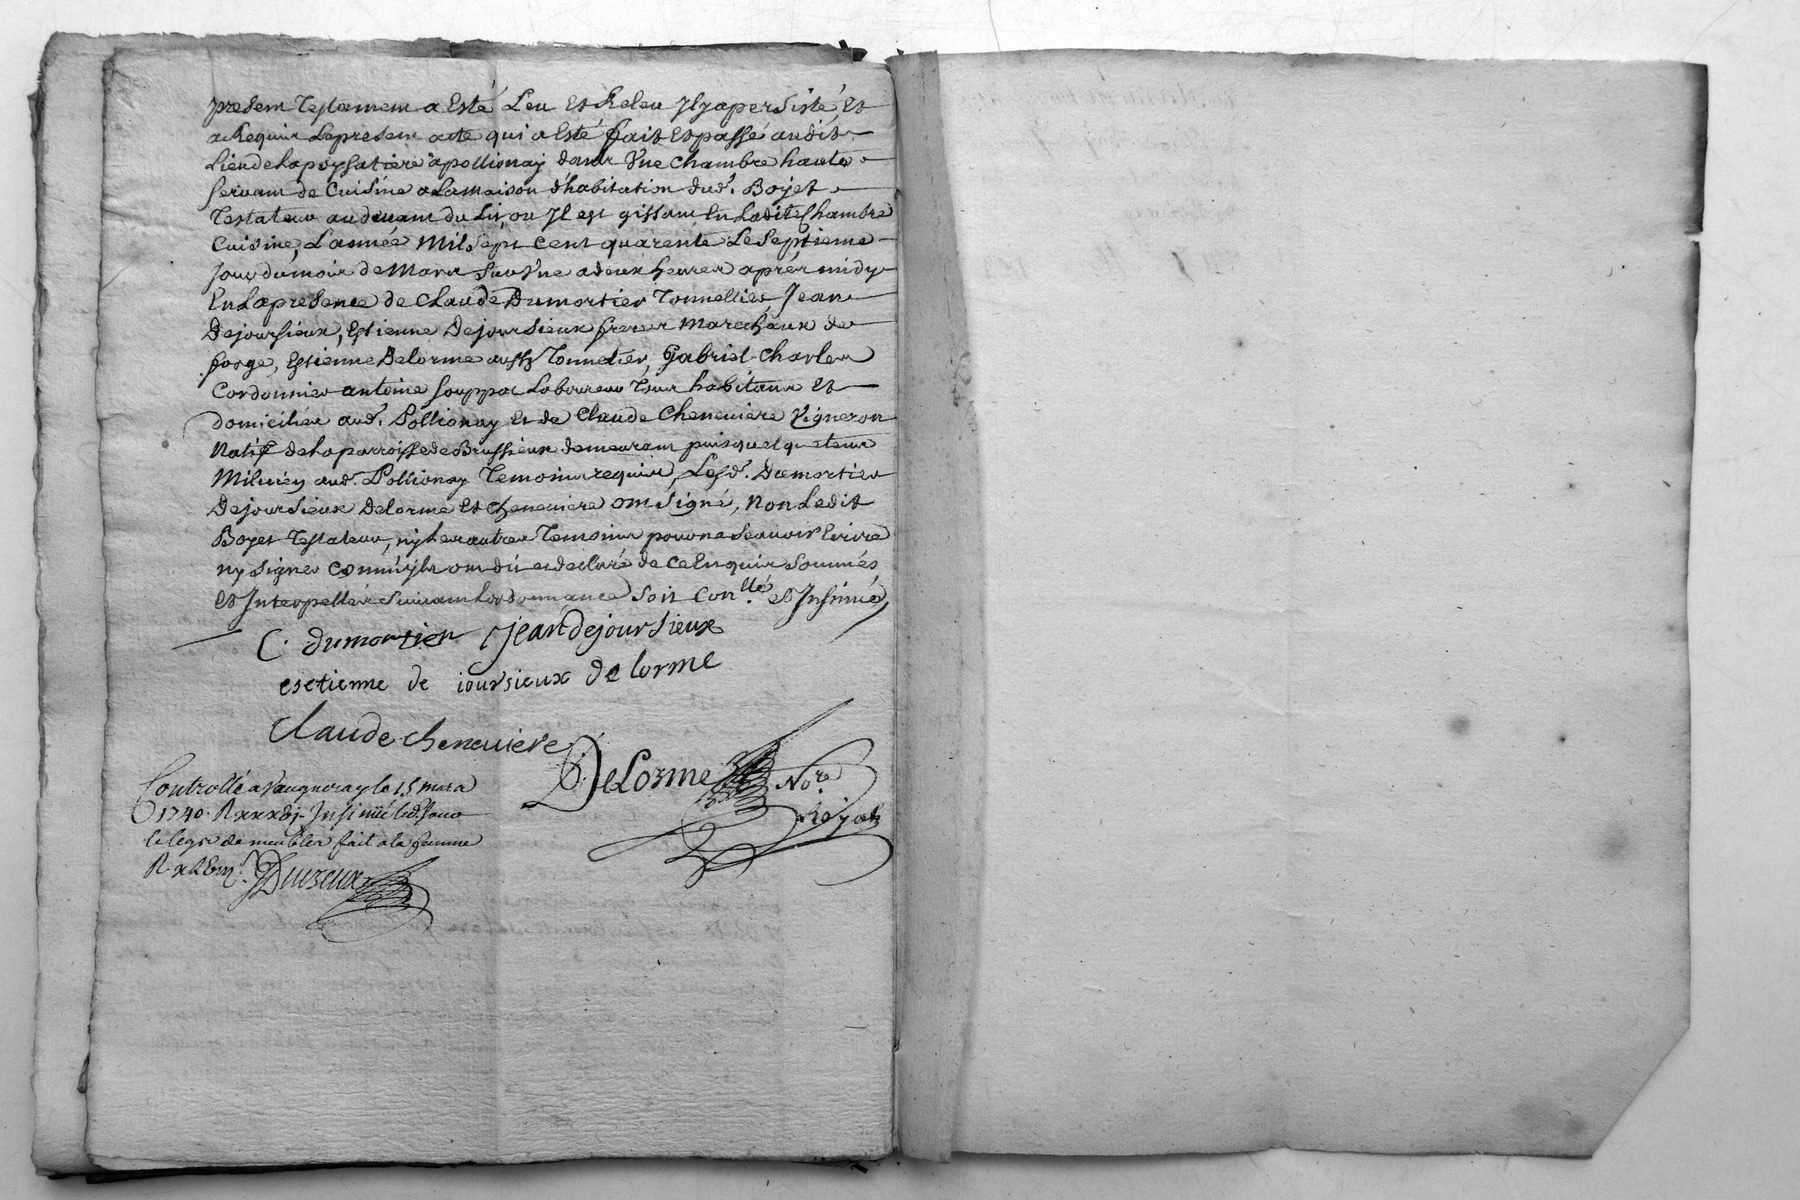 present Testament a Esté Leu Et Releu Il y a persisté, Et
a Requis Le present acte qui a Esté fait Et passé audit
Lieu de La poyssatiere a pollionay dans Vne Chambre haute
servant de Cuisine a La maison d'habitation dud. Boyet
Testateur au devant du Lit ou Il est gissant En Ladite Chambre
Cuisine, L'année Mil Sept Cent quarente Le Septieme
Jour du mois de Mars Sur Vne a deux heures apres midy
En La presence de Claude Dumortier Tonnellier Jean
Dejoursieux, Estienne Dejoursieux freres Marechaux de
forge, Estienne Delorme aussy Tonnelier, Gabriel Charles
Cordonnier antoine Souppat Laboureur Tous habitans Et
domiciliés aud. Pollionay Et de Claude Cheneviere Vigneron
Natif de La parroisse de Brussieux demeurant puis quelque temps
aud. Pollionay Temoins requis, Lesd. Dumortier
Dejoursieux Delorme Et Cheneviere ont Signé, Non Ledit
Boyet Testateur, ny Les autres Temoins pour ne Scavoir Ecrire
ny Signer Comm'ils ont dit et declaré de ce Enquis Sommés
Et Interpellés Suivant Lordonnance Soit Con.llé et Insinué
C. dumortier Jean dejoursieux
esetienne de joursieux de lorme
Claude cheneviere
DeLorme No.re
Royal
Controllé a Vaugneray le 15 mars
1740. R Insinué led. Jour
le legs de meubles fait a la femme
R